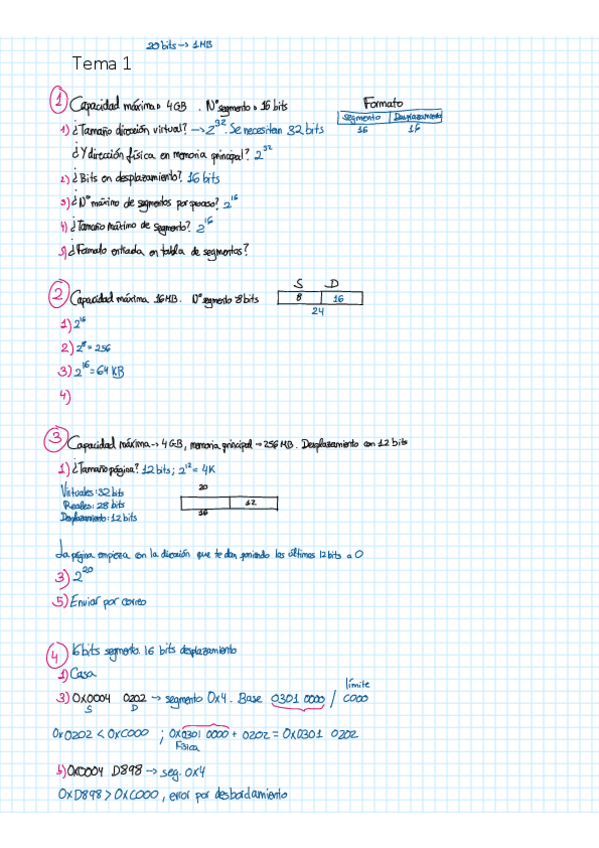 20 bits → 1MB
Tema 1
1 Capacidad máxima → 4GB . Nº segmento → 16 bits
Formato
segmento Desplazamiento
16 16
1) ¿Tamaño dirección virtual? → 2^32. Se necesitan 32 bits
¿Y dirección física en memoria principal? 2^32
2) ¿Bits en desplazamiento? 16 bits
3) ¿Nº máximo de segmentos por proceso? 2^16
4) ¿Tamaño máximo de segmento? 2^16
5) ¿Formato entrada en tabla de segmentos?
2 Capacidad máxima 16MB. Nº segmento 8 bits
S D
8 16
24
1) 2^16
2) 2^8 = 256
3) 2^16 = 64 KB
4)
3 Capacidad máxima → 4GB, memoria principal → 256 MB. Desplazamiento con 12 bits
1) ¿Tamaño página? 12 bits; 2^12 = 4K
Virtuales: 32 bits
Reales: 28 bits
Desplazamiento: 12 bits
20
12
16
La página empieza con la dirección que te dan poniendo las últimas 12 bits a 0
3) 2^20
5) Enviar por correo
4 16 bits segmento. 16 bits desplazamiento
1) Casa
3) 0X0004 0202 → segmento 0x4. Base 0301 0000 / C000
límite
S D
0x0202 < 0xC000 ; 0x0301 0000 + 0202 = 0x0301 0202
Física
b) 0x0004 D898 → seg. 0x4
0xD898 > 0xC000, error por desbordamiento